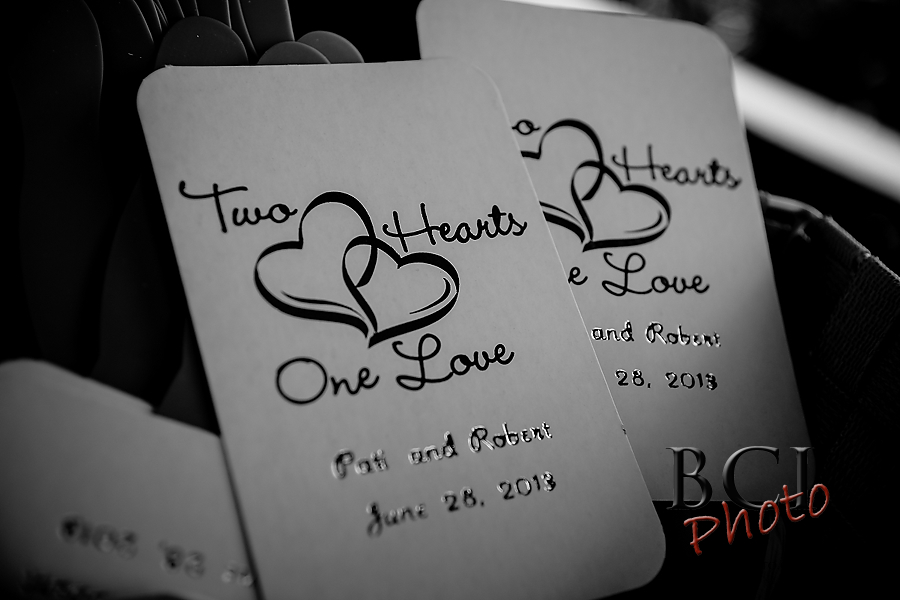 Two Hearts
One Love
Pati and Robert
June 28, 2013
o Hearts
e Love
and Robert
28, 2013
BCI
Photo